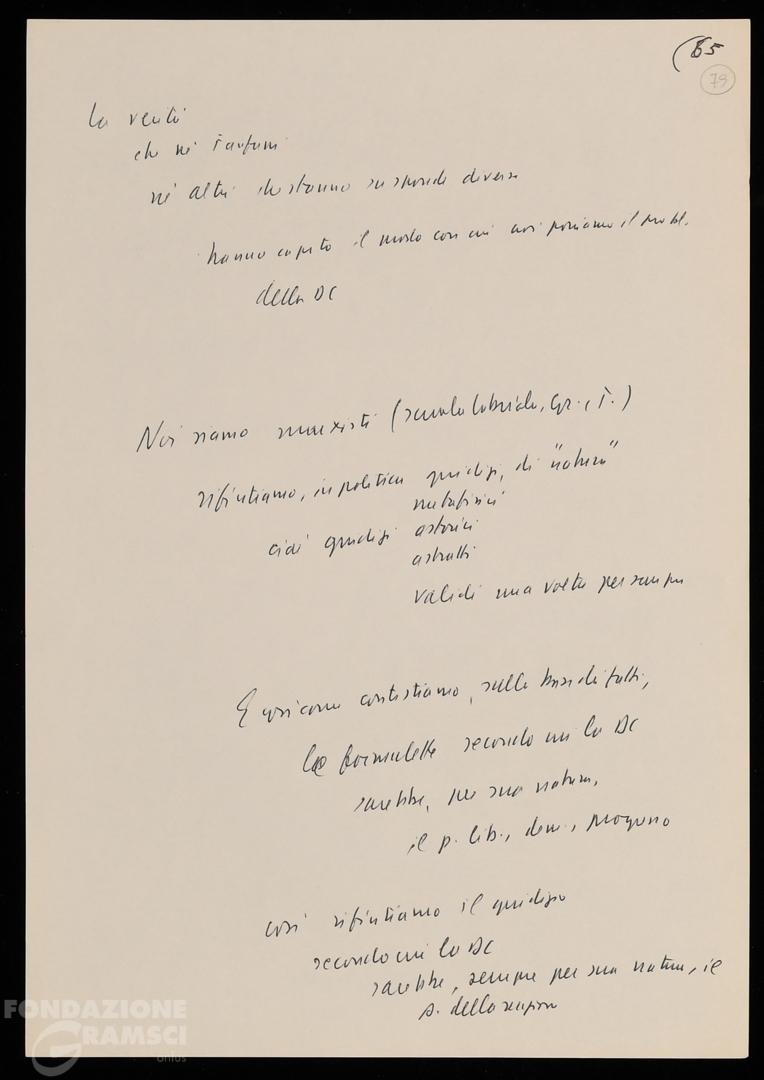 65
79
La verità
che né Fanfani
né altri che stanno su sponde diverse
hanno capito il modo con cui noi poniamo il probl.
della DC
Noi siamo marxisti (scuola Labriola, Gr., T.)
rifiutiamo, in politica giudizi, di "natura"
metafisici
cioè giudizi astorici
astratti
validi una volta per sempre
E così come contestiamo, sulla base di fatti,
le formulette secondo cui la DC
sarebbe, per sua natura,
il p. lib., dem., progresso
così rifiutiamo il giudizio
secondo cui la DC
sarebbe, sempre per sua natura, il
p. della
FONDAZIONE
GRAMSCI
onlus